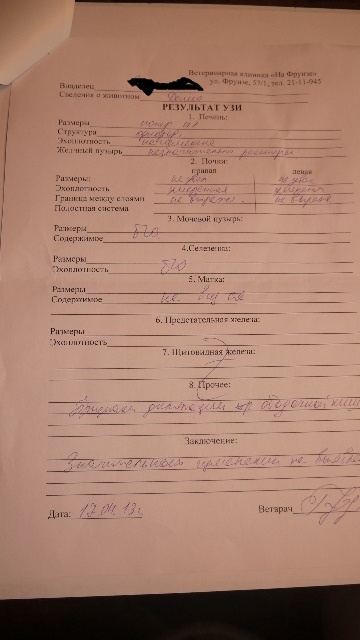 Ветеринарная клиника «На Фрунзе»
ул. Фрунзе, 57/1, тел. 21-11-945
Владелец
Сведения о животном
РЕЗУЛЬТАТ УЗИ
1. Печень:
Размеры
Структура
Эхоплотность
Желчный пузырь незначительно расширен
2. Почки:
правая левая
Размеры: не увел не увел
Эхоплотность умеренная
Граница между слоями не выраж.
Полостная система
3. Мочевой пузырь:
Размеры
Содержимое б/о
4.Селезенка:
Размеры
Эхоплотность б/о
5. Матка:
Размеры
Содержимое не виз-ся
6. Предстательная железа:
Размеры
Эхоплотность
7. Щитовидная железа:
8. Прочее:
Признаки дилатации ободочной киш
Заключение:
Значительных изменений не выявл
Дата: 17.04.13г. Ветврач